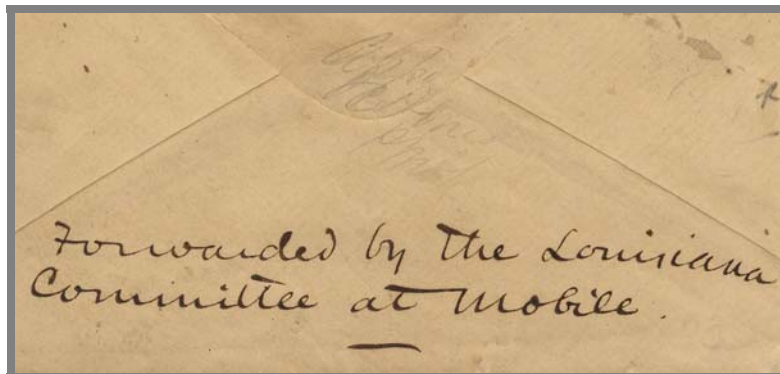 Forwarded by the Louisiana
Committee at Mobile.